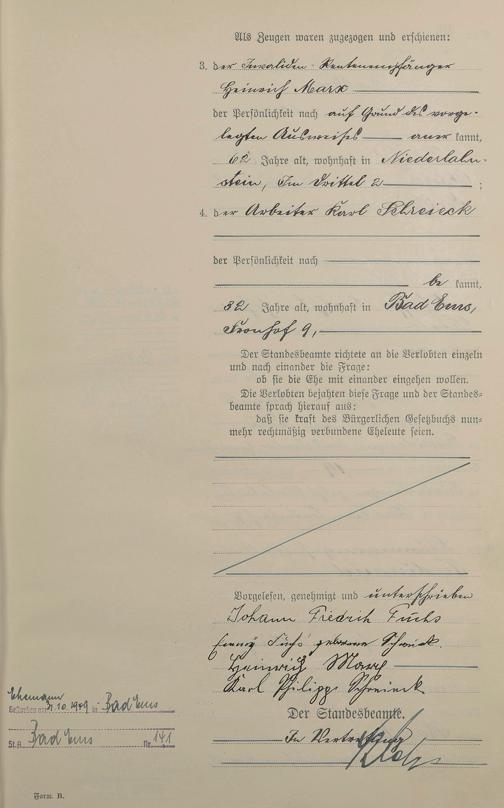 Als Zeugen waren zugezogen und erschienen:
3. der Invaliden-Rentenempfänger
Heinrich Marx
der Persönlichkeit nach auf Grund des vorge-
legten Ausweises aner kannt,
62 Jahre alt, wohnhaft in Niederlahn-
stein, Im Drittel 2 ;
4. der Arbeiter Karl Schreieck
der Persönlichkeit nach
be kannt,
32 Jahre alt, wohnhaft in Bad Ems,
Fronhof 9,
Der Standesbeamte richtete an die Verlobten einzeln
und nach einander die Frage:
ob sie die Ehe mit einander eingehen wollen.
Die Verlobten bejahten diese Frage und der Standes-
beamte sprach hierauf aus:
daß sie kraft des Bürgerlichen Gesetzbuchs nun-
mehr rechtmäßig verbundene Eheleute seien.
Vorgelesen, genehmigt und unterschrieben
Johann Fiedrich Fuchs
Fuchs geborene
Heinrich Marx
Karl Philipp Schreieck
Der Standesbeamte.
In Vertretung
Ehemann
Gestorben am .10.1949 in Bad Ems
St.A. Bad Ems Nr. 141
Form. B.